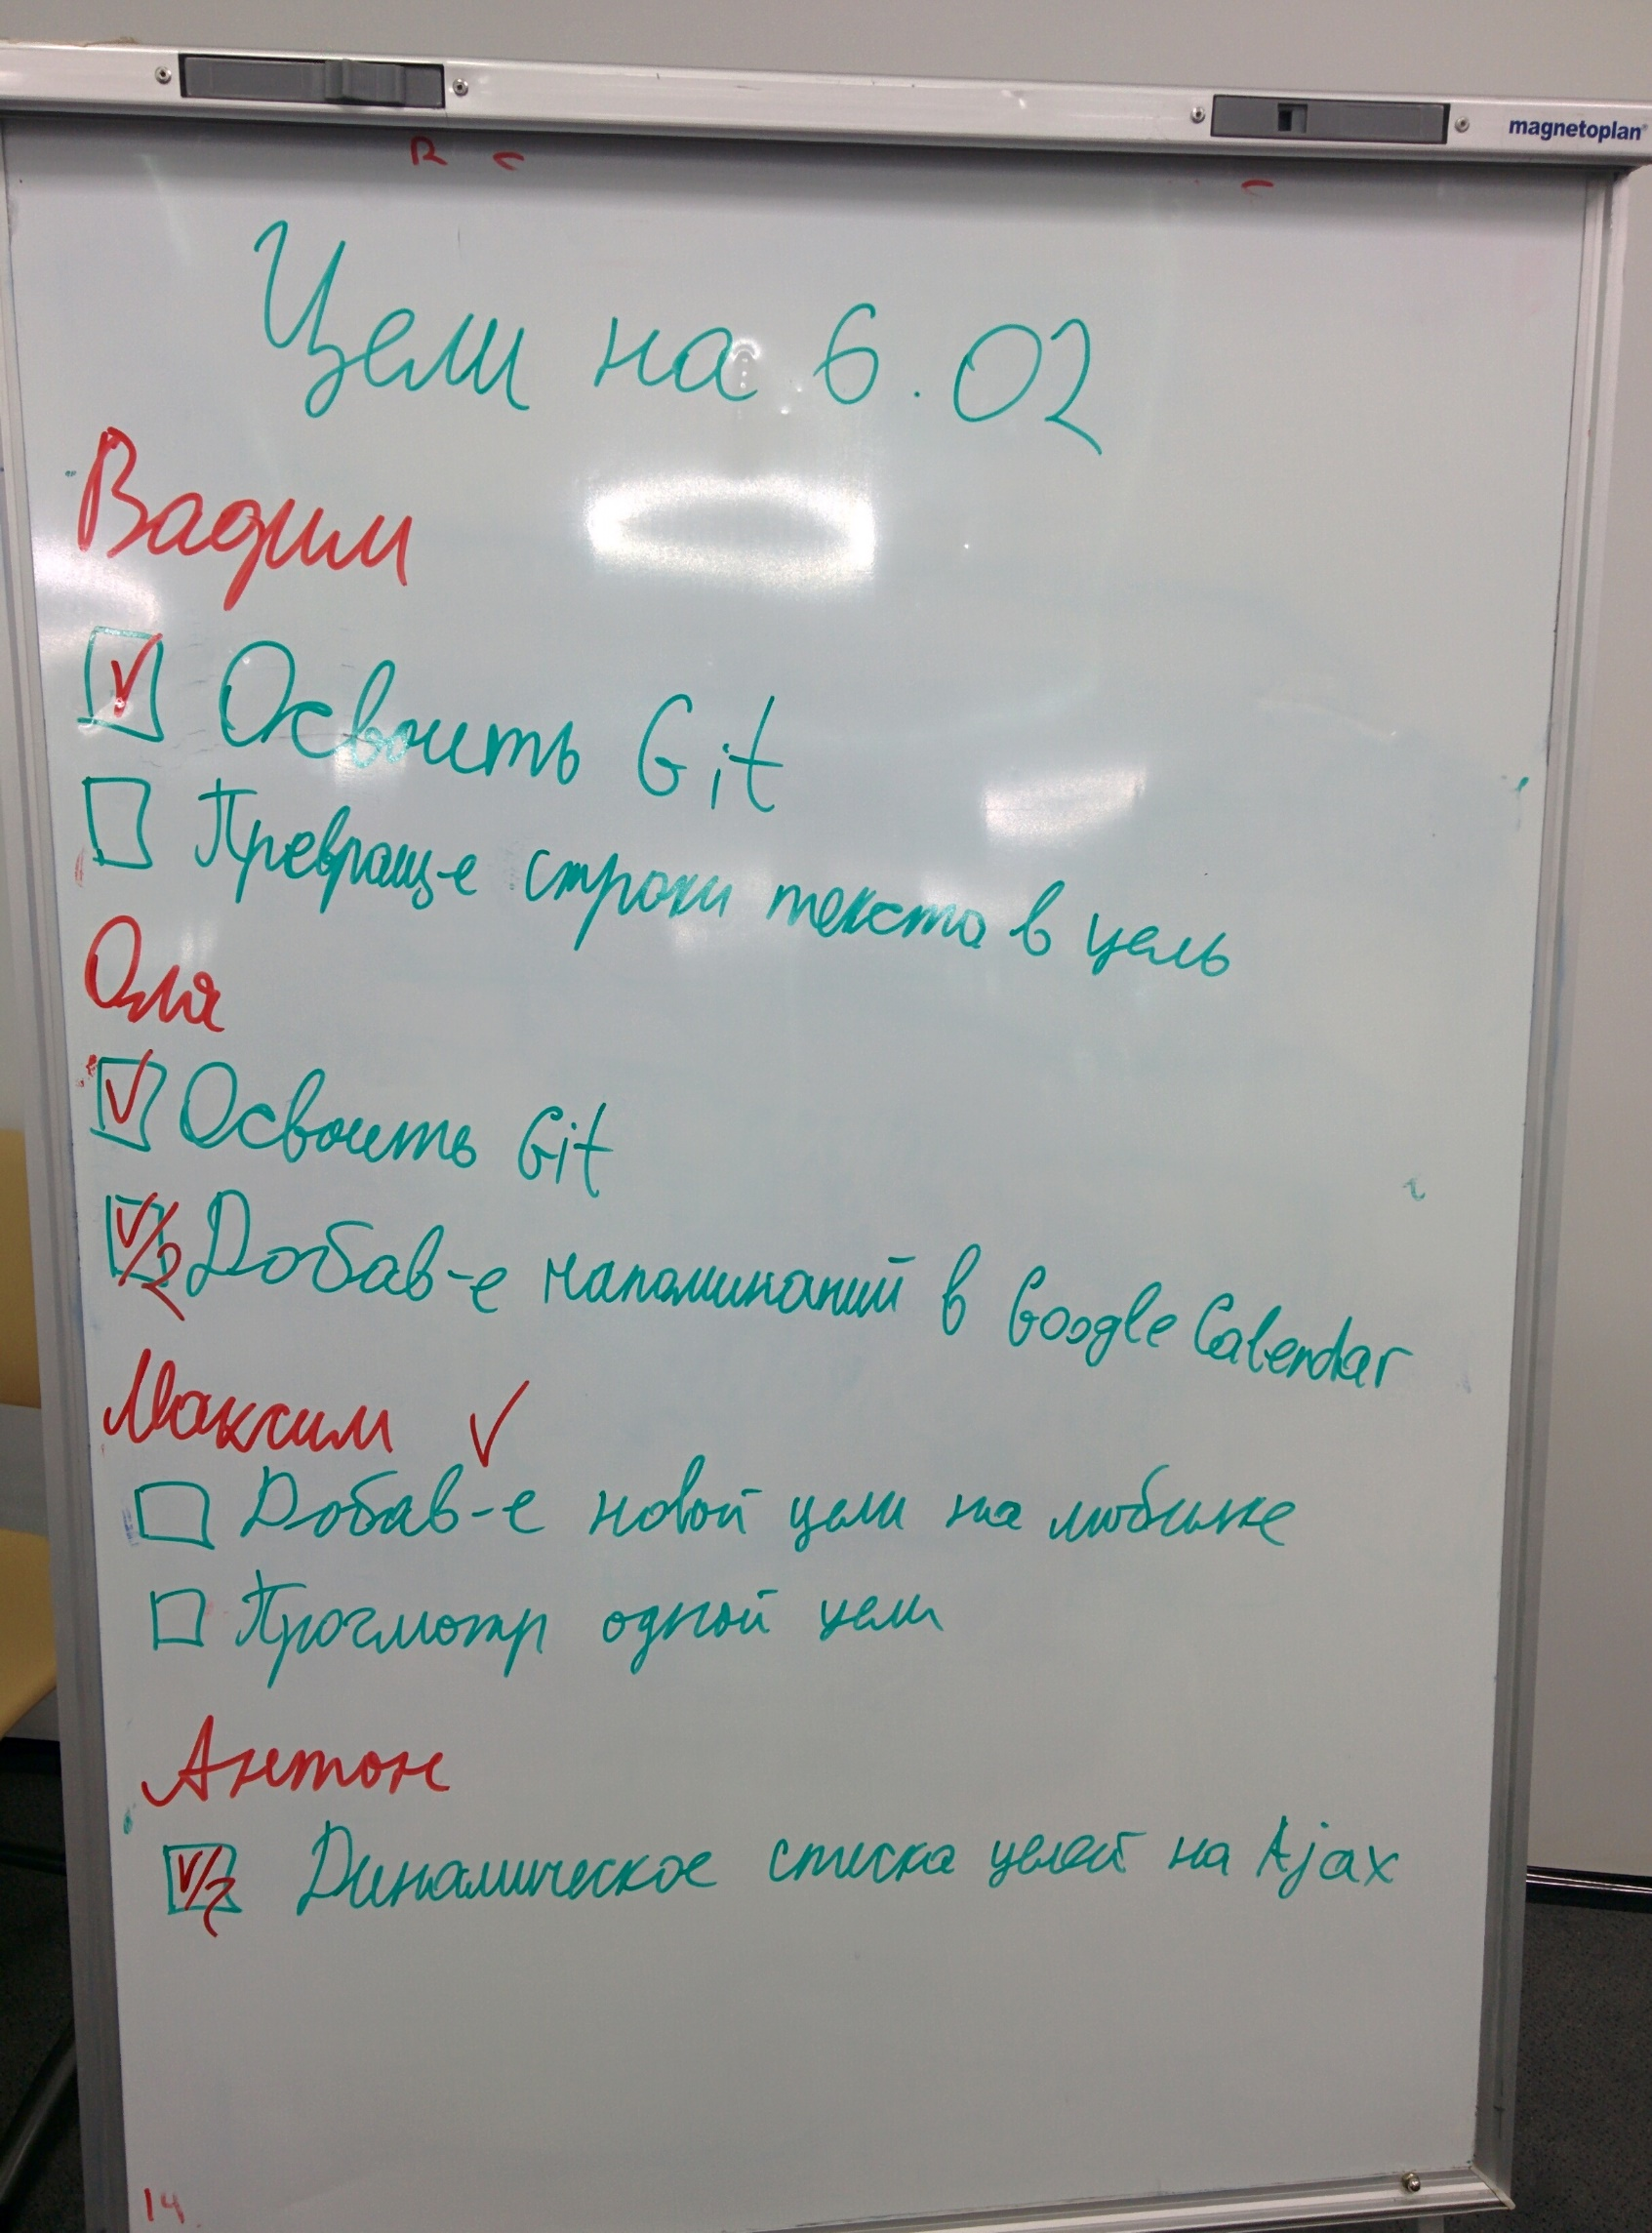 magnetoplan
Цели на 6.02
Вадим
Освоить Git
Превращ-е строки текста в цель
Оля
Освоить Git
√/2 Добав-е напоминаний в Google Calendar
Максим √
Добав-е новой цели на мобилке
Просмотр одной цели
Антон
√/2 Динамическое списка целей на Ajax
14